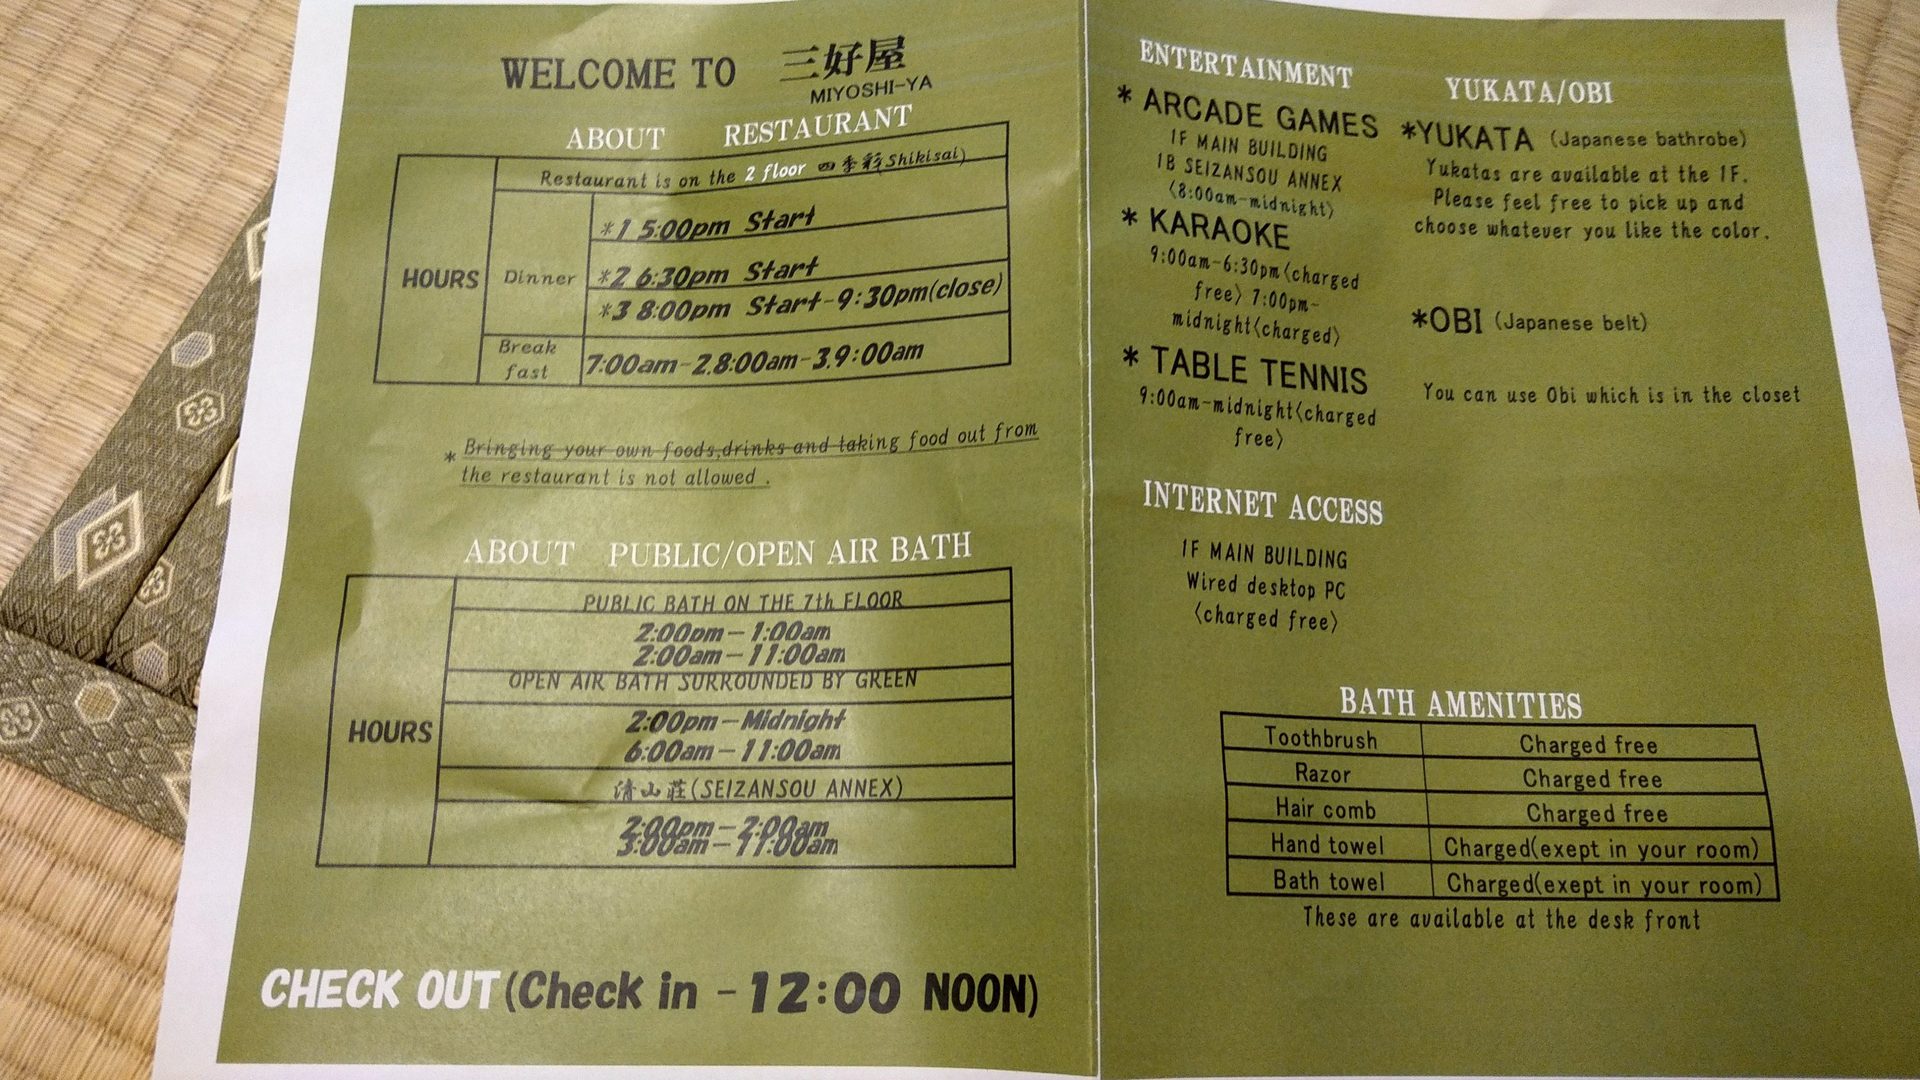 WELCOME TO 三好屋
MIYOSHI-YA
ABOUT RESTAURANT
Restaurant is on the 2 floor 四季彩Shikisai)
HOURS
Dinner
*1 5:00pm Start
*2 6:30pm Start
*3 8:00pm Start-9:30pm(close)
Break
fast
7:00am-2.8:00am-3.9:00am
* Bringing your own foods,drinks and taking food out from
the restaurant is not allowed .
ABOUT PUBLIC/OPEN AIR BATH
HOURS
PUBLIC BATH ON THE 7th FLOOR
2:00pm-1:00am
2:00am-11:00am
OPEN AIR BATH SURROUNDED BY GREEN
2:00pm-Midnight
6:00am-11:00am
清山荘(SEIZANSOU ANNEX)
2:00pm-2:00am
3:00am-11:00am
CHECK OUT(Check in - 12:00 NOON)
ENTERTAINMENT
* ARCADE GAMES
1F MAIN BUILDING
1B SEIZANSOU ANNEX
〈8:00am-midnight〉
* KARAOKE
9:00am-6:30pm〈charged
free〉 7:00pm-
midnight〈charged〉
* TABLE TENNIS
9:00am-midnight〈charged
free〉
INTERNET ACCESS
1F MAIN BUILDING
Wired desktop PC
〈charged free〉
YUKATA/OBI
*YUKATA (Japanese bathrobe)
Yukatas are available at the 1F.
Please feel free to pick up and
choose whatever you like the color.
*OBI (Japanese belt)
You can use Obi which is in the closet
BATH AMENITIES
Toothbrush Charged free
Razor Charged free
Hair comb Charged free
Hand towel Charged(exept in your room)
Bath towel Charged(exept in your room)
These are available at the desk front